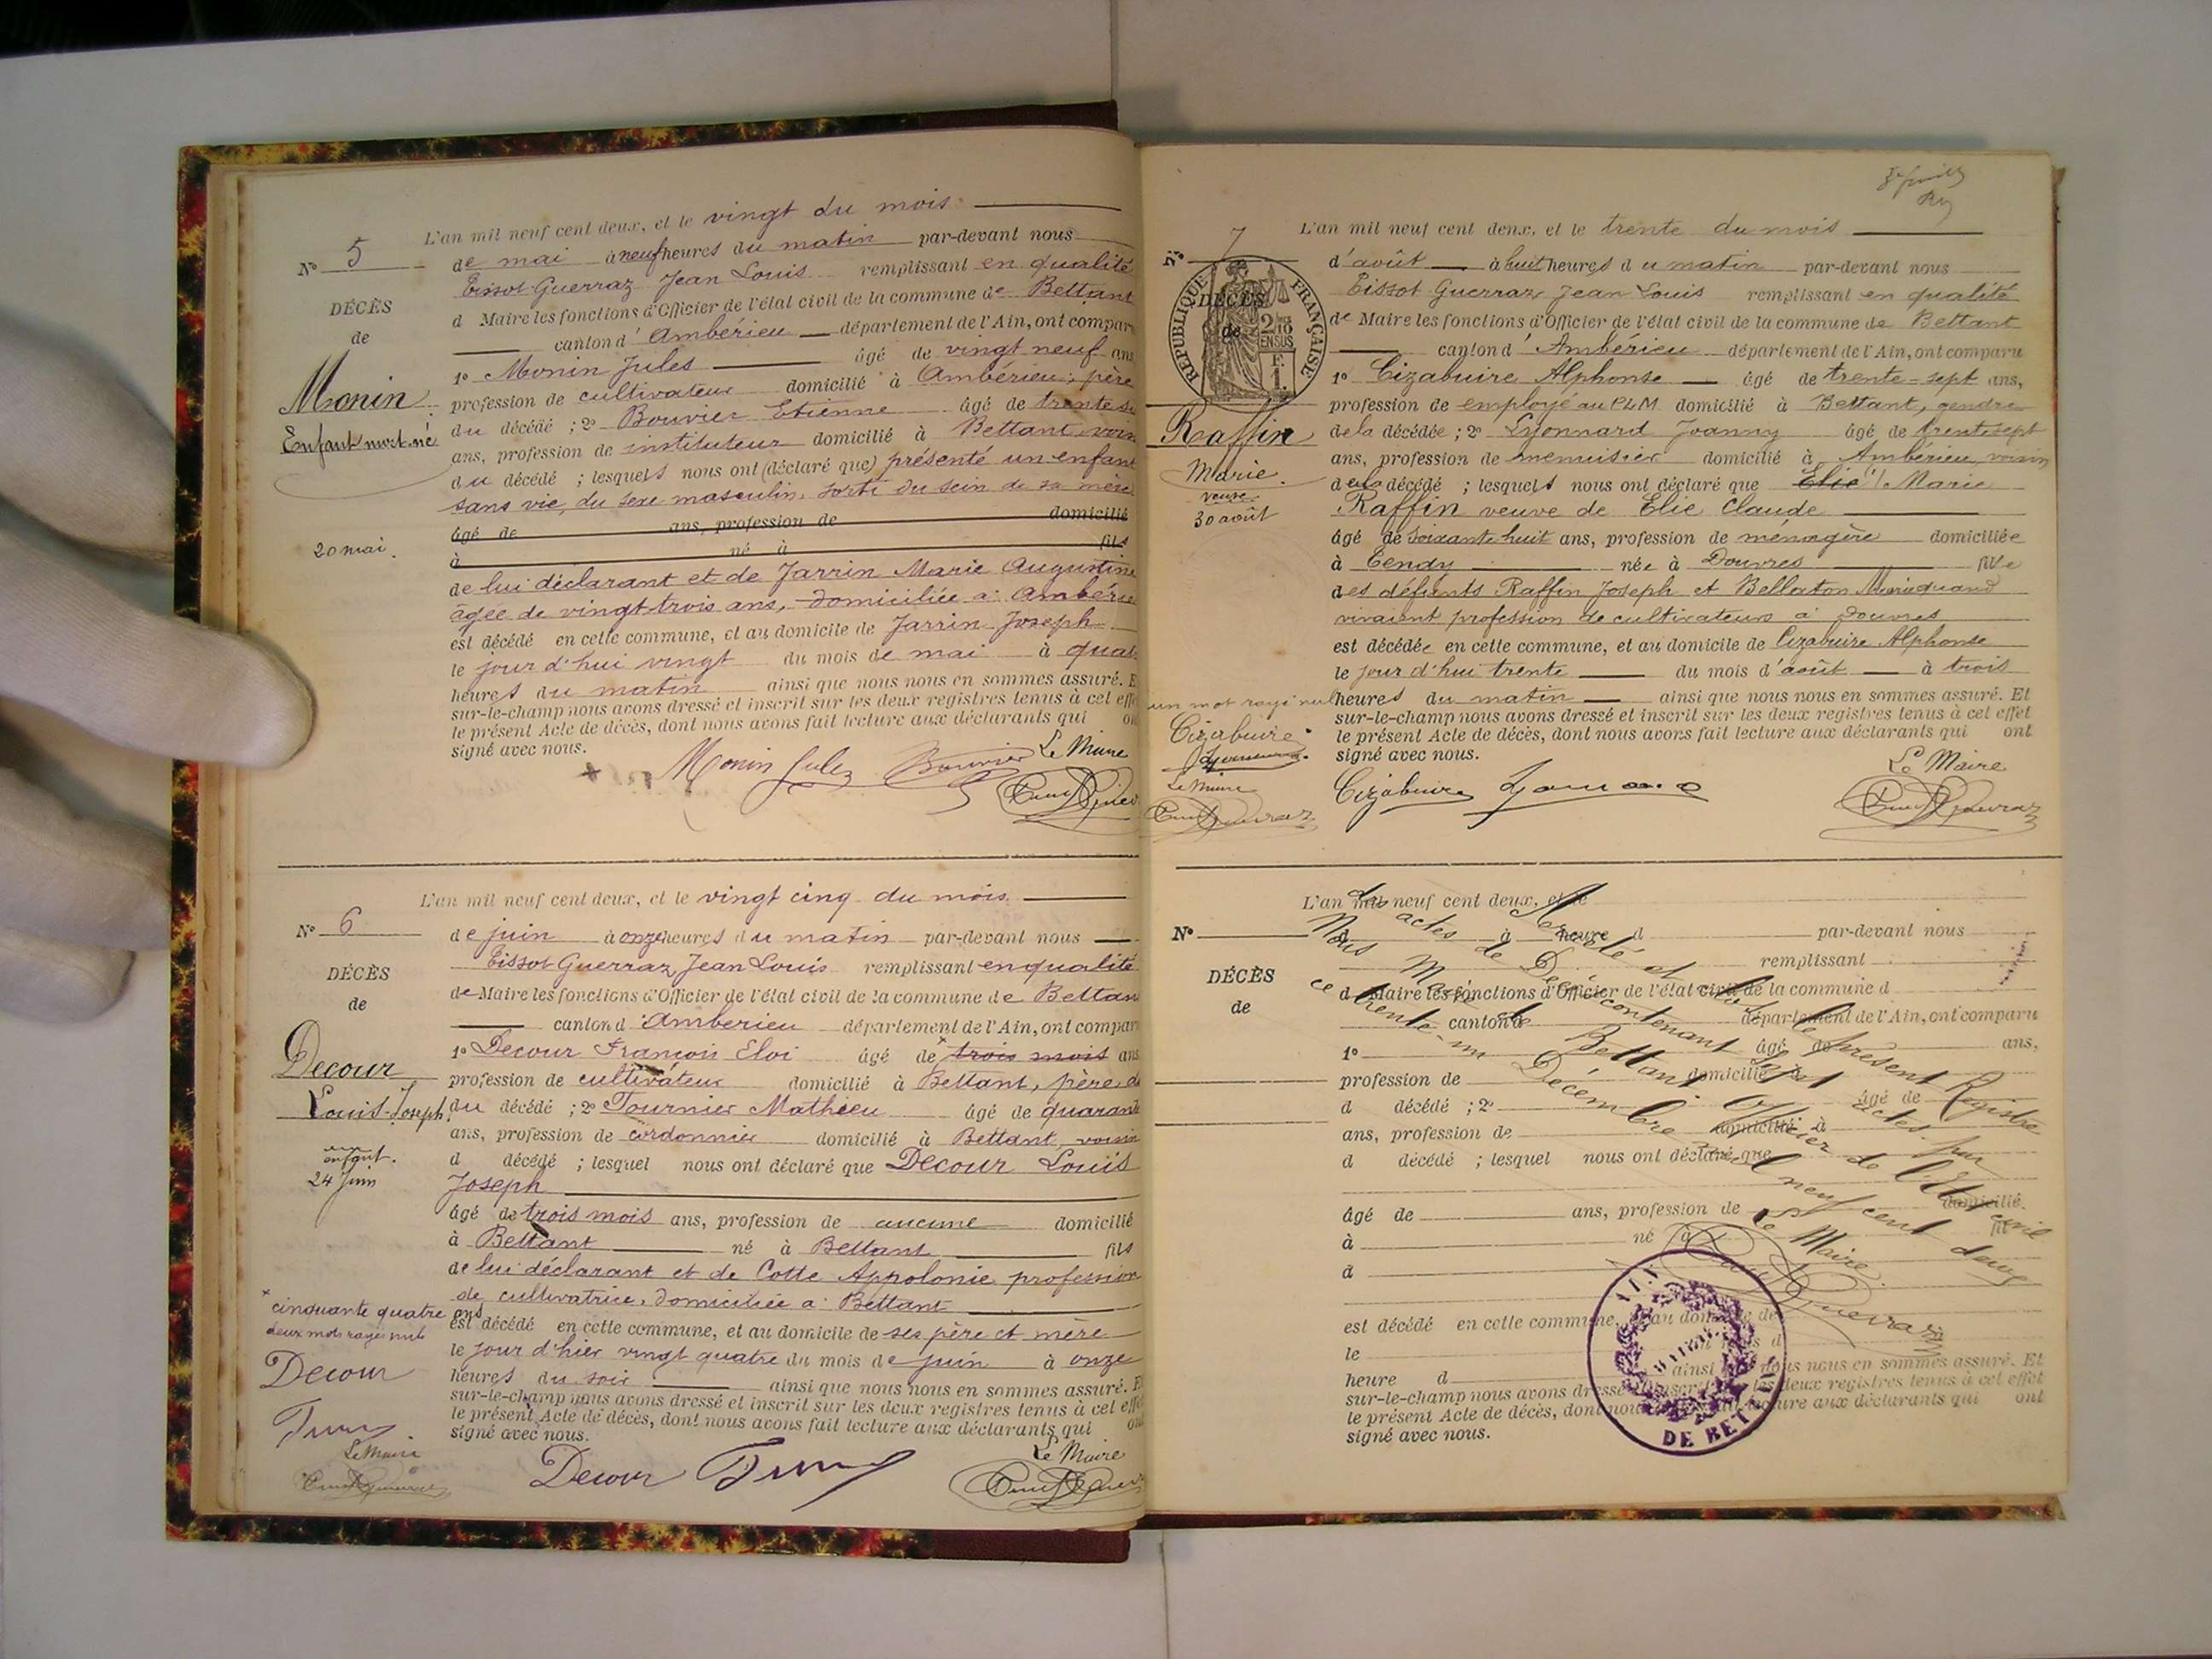 L'an mil neuf cent deux, et le vingt du mois
N° 5
de mai à neuf heures du matin par-devant nous
Tissot-Guerraz Jean Louis remplissant en qualité
DÉCÈS
d Maire les fonctions d'Officier de l'état civil de la commune de Bettant
de
canton d'Ambérieu département de l'Ain, ont compar
Monin
1° Monin Jules âgé de vingt neuf ans
profession de cultivateur domicilié à Ambérieu, père
Enfant mort-né
du décédé ; 2° Bouvier Etienne âgé de trente si
ans, profession de instituteur domicilié à Bettant, voisin
du décédé ; lesquels nous ont (déclaré que) présenté un enfant
sans vie, du sexe masculin, sorti du sein de sa mère
âgé de ans, profession de domicilié
20 mai.
à né à fils
de lui déclarant et de Jarrin Marie Augustine
âgée de vingt-trois ans, domiciliée à Ambérieu
est décédé en cette commune, et au domicile de Jarrin Joseph
le jour d'hui vingt du mois de mai à quat
heures du matin ainsi que nous nous en sommes assuré. E
sur-le-champ nous avons dressé et inscrit sur les deux registres tenus à cet effe
le présent Acte de décès, dont nous avons fait lecture aux déclarants qui on
signé avec nous.
Monin Jules Bouvier Le Maire
L'an mil neuf cent deux, et le vingt cinq du mois
N° 6
de juin à onze heures du matin par-devant nous
Tissot-Guerraz Jean Louis remplissant en qualité
DÉCÈS
de Maire les fonctions d'Officier de l'état civil de la commune de Bettan
de
canton d'Ambérieu département de l'Ain, ont compar
Decour
1° Decour François Eloi âgé de × trois mois ans
profession de cultivateur domicilié à Bettant, père d
Louis-Joseph
du décédé ; 2° Tournier Mathieu âgé de quarante
ans, profession de cordonnier domicilié à Bettant, voisin
enfant.
d décédé ; lesquel nous ont déclaré que Decour Louis
24 Juin
Joseph
âgé de trois mois ans, profession de aucune domicilié
à Bettant né à Bettant fils
de lui déclarant et de Cotte Appolonie profession
de cultivatrice, domiciliée à Bettant
× cinquante quatre ans
deux mots rayés nuls
est décédé en cette commune, et au domicile de ses père et mère
le jour d'hier vingt quatre du mois de juin à onze
Decour
heures du soir ainsi que nous nous en sommes assuré. E
sur-le-champ nous avons dressé et inscrit sur les deux registres tenus à cet effe
le présent Acte de décès, dont nous avons fait lecture aux déclarants qui on
signé avec nous.
Le Maire
Decour Le Maire
L'an mil neuf cent deux, et le trente du mois
N° 7
d'août à huit heures du matin par-devant nous
Tissot Guerraz Jean Louis remplissant en qualité
RÉPUBLIQUE FRANÇAISE
DÉCÈS
de
de Maire les fonctions d'Officier de l'état civil de la commune de Bettant
canton d'Ambérieu département de l'Ain, ont comparu
1° Cizabuire Alphonse âgé de trente-sept ans,
profession de employé au PLM domicilié à Bettant, gendre
Raffin
de la décédée ; 2° Lyonnard Joanny âgé de trente sept
ans, profession de menuisier domicilié à Ambérieu, voisin
Marie.
de la décédé ; lesquels nous ont déclaré que Elie Marie
veuve
30 août
Raffin veuve de Elie Claude
âgé de soixante huit ans, profession de ménagère domiciliée
à Cendy née à Douvres fille
des défunts Raffin Joseph et Bellaton Marie quand
vivaient profession de cultivateurs à Douvres
est décédée en cette commune, et au domicile de Cizabuire Alphonse
le jour d'hui trente du mois d'août à trois
un mot rayé nul
heures du matin ainsi que nous nous en sommes assuré. Et
sur-le-champ nous avons dressé et inscrit sur les deux registres tenus à cet effet
Cizabuire
le présent Acte de décès, dont nous avons fait lecture aux déclarants qui ont
signé avec nous.
Le Maire
Cizabuire Le Maire
L'an mil neuf cent deux, et le
N°
d à heure d par-devant nous
remplissant
DÉCÈS
d Maire les fonctions d'Officier de l'état civil de la commune d
de
canton d département de l'Ain, ont comparu
1° âgé de ans,
profession de domicilié à
d décédé ; 2° âgé de
ans, profession de domicilié à
d décédé ; lesquel nous ont déclaré que
âgé de ans, profession de domicilié
à né à fil
d
est décédé en cette commune, et au domicile de
le du mois d
heure d ainsi que nous nous en sommes assuré. Et
sur-le-champ nous avons dressé et inscrit sur les deux registres tenus à cet effet
le présent Acte de décès, dont nous avons fait lecture aux déclarants qui ont
signé avec nous.
Arrêté et clos le présent Registre
des actes de Décès contenant sept actes par
Nous Maire de Bettant Officier de l'Etat civil
ce trente-un Décembre mil neuf cent deux
Le Maire.
MAIRIE
DE BETTANT
AIN